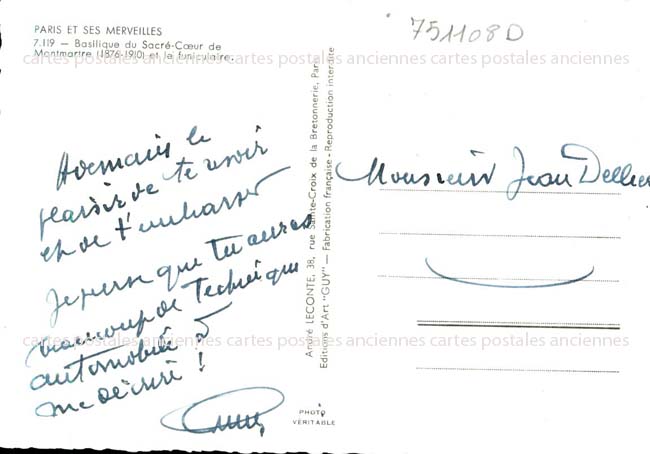 PARIS ET SES MERVEILLES
7.119 — Basilique du Sacré-Cœur de
Montmartre (1876-1910) et le funiculaire.
cartes postales anciennes cartes postales anciennes cartes postales anciennes
751108D
A demain le
plaisir de te revoir
et de t'embrasser
Je pense que tu auras
beaucoup de Technique
automobile à
me décrire !
cartes postales anciennes cartes postales anciennes cartes postales anciennes
André LECONTE, 38, rue Sainte-Croix de la Bretonnerie, Paris
Editions d'Art "GUY" — Fabrication française - Reproduction interdite
PHOTO
VERITABLE
Monsieur Jean